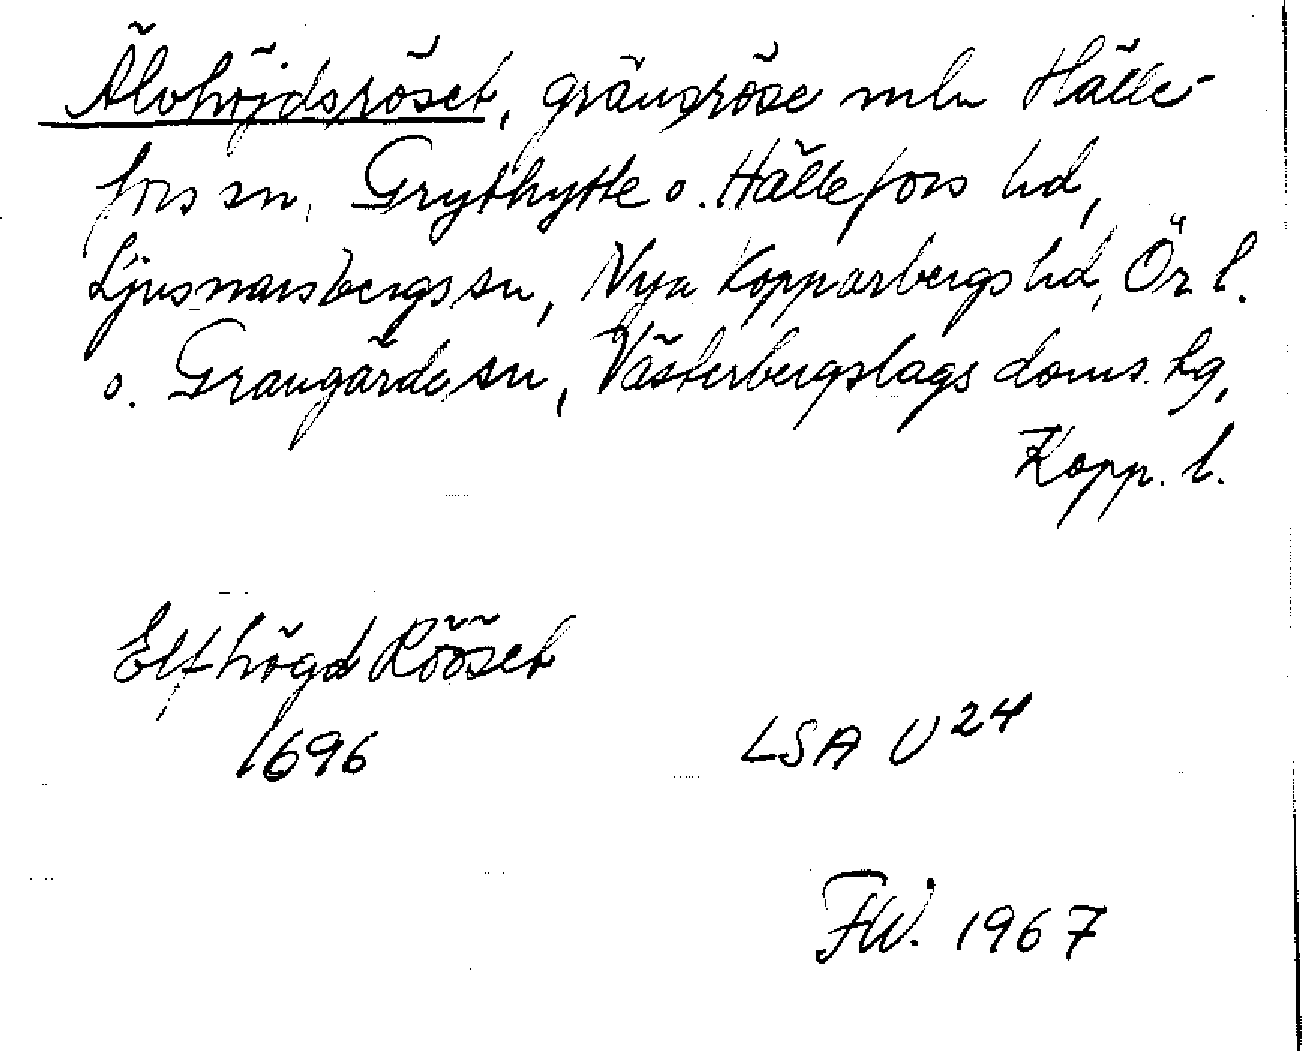 Älvhöjdsröset, gränsröse mln Hälle-
fors sn, Grythytte o. Hällefors hd,
Ljusnarsbergs sn, Nya Kopparbergs hd, Ör l.
o. Grangärde sn, Västerbergslags doms. tg,
Kopp. l.
Elfhögd Rööset
1696
LSA U24
FW. 1967